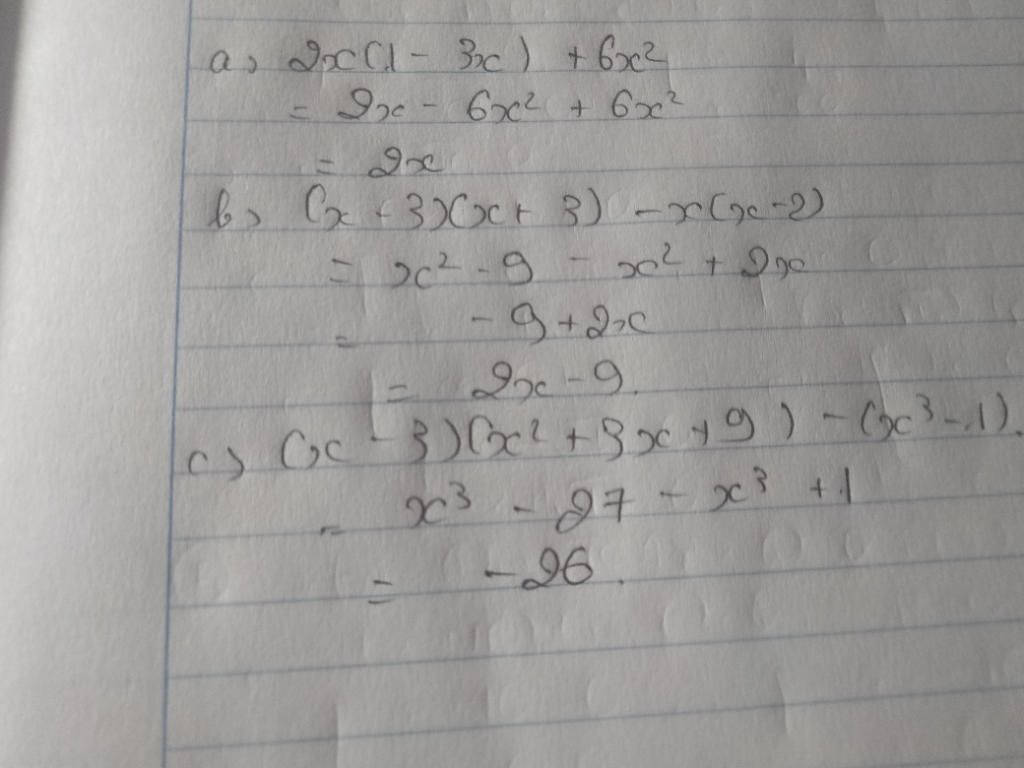 a) 2x(1 - 3x) + 6x²
= 2x - 6x² + 6x²
= 2x
b) (x + 3)(x + 3) - x(x - 2)
= x² - 9 - x² + 2x
= - 9 + 2x
= 2x - 9.
c) (x - 3)(x² + 3x + 9) - (x³ - 1).
= x³ - 27 - x³ + 1
= - 26.